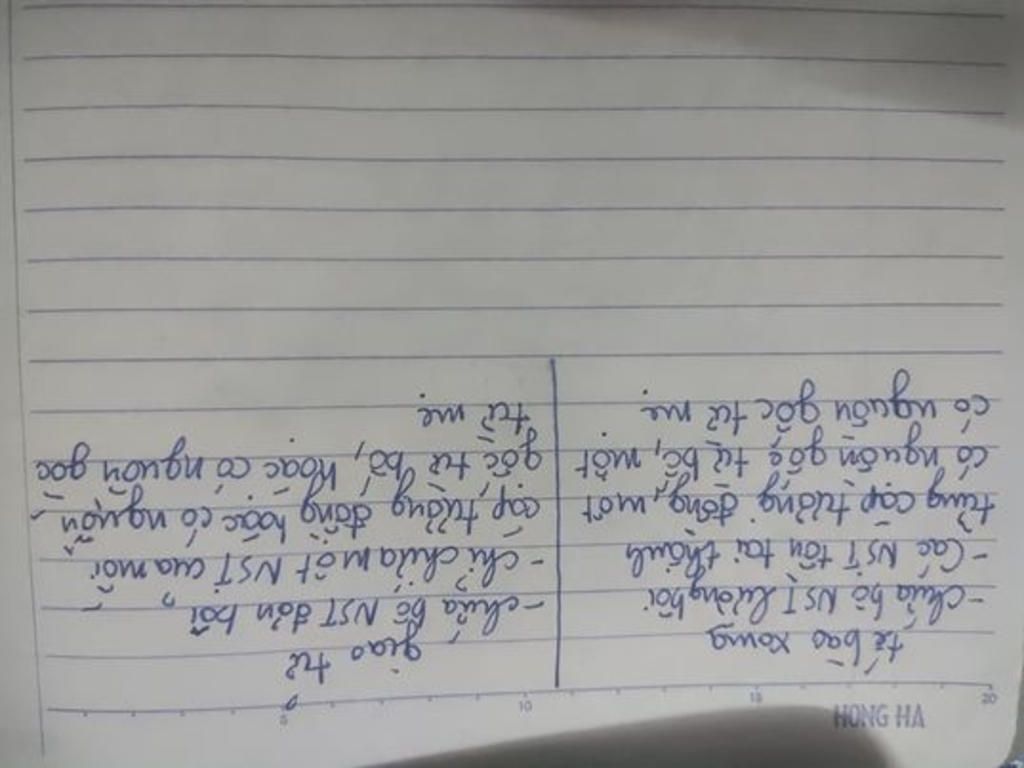 tế bào
- Chứa bộ NST lưỡng bội
- Các NST tồn tại thành
từng cặp tương đồng, một
có nguồn gốc từ bố, một
có nguồn gốc từ mẹ.
giao tử
- chứa bộ NST đơn bội
- chỉ chứa một NST của mỗi
cặp tương đồng hoặc có nguồn
gốc từ bố, hoặc có nguồn gốc
từ mẹ.
5 10 15 20
HONG HA